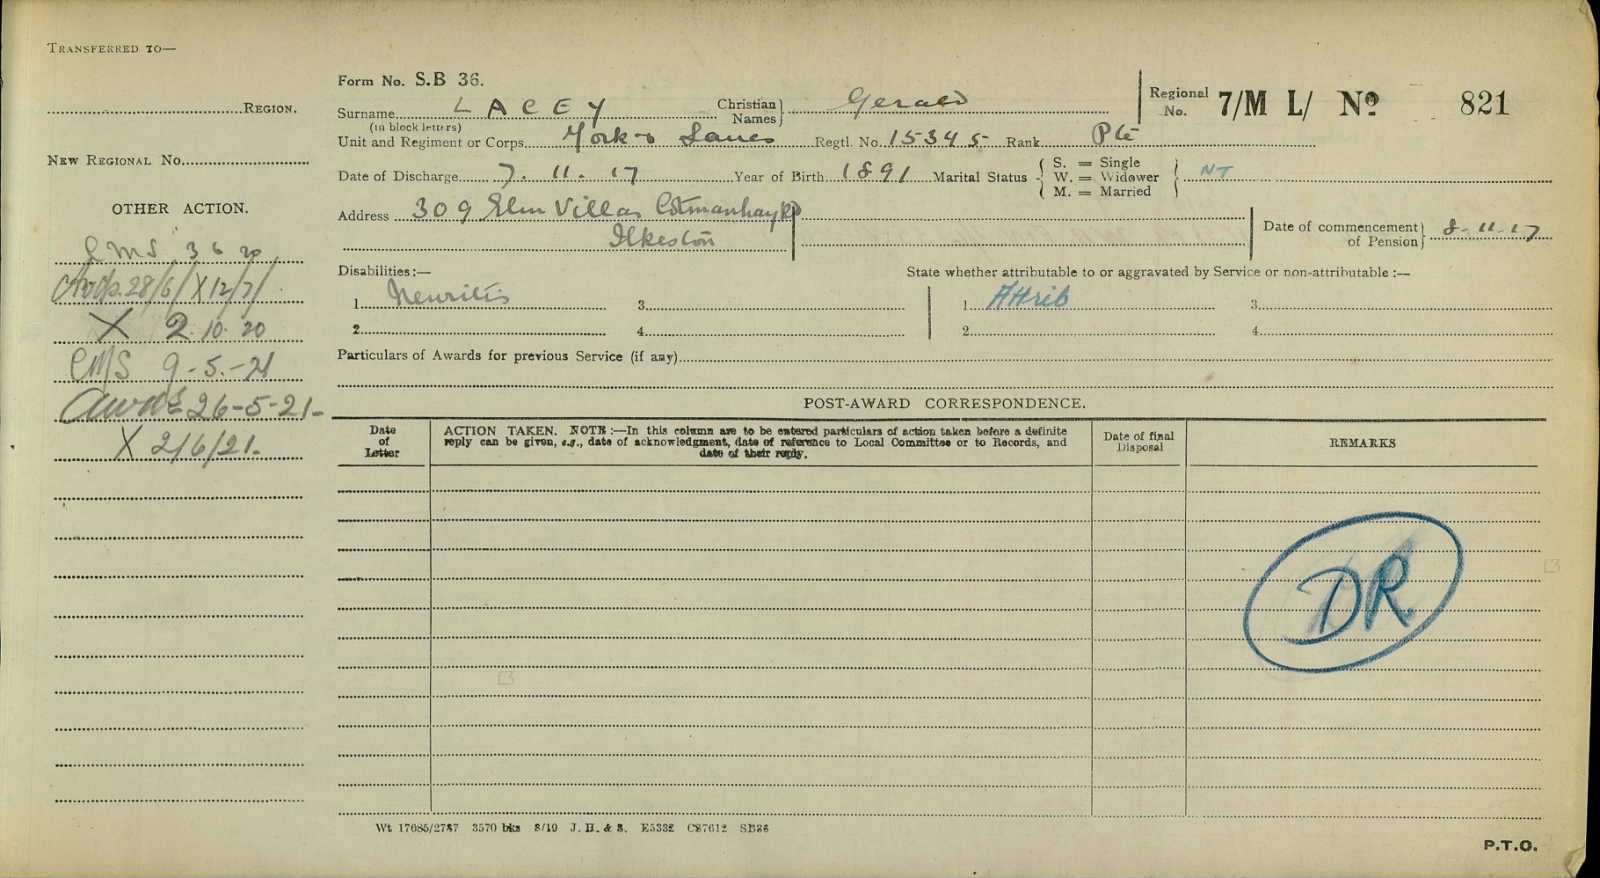 TRANSFERRED TO—
REGION.
NEW REGIONAL No.
OTHER ACTION.
3 6 20
28/6/ X 12/7/
X 2. 10. 20
CMS 9-5.-21
26-5-21-
X 2/6/21.
Form No. S.B 36.
Surname LACEY Christian Names} Gerald
(in block letters)
Regional No. 7/M L/ No 821
Unit and Regiment or Corps York & Lancs Regtl. No. 15345 Rank Pte
Date of Discharge 7. 11. 17 Year of Birth 1891 Marital Status { S. = Single W. = Widower M. = Married } NT
Address 309 Elm Villas Cotmanhay Rd
Ilkeston
Date of commencement of Pension} 8-11-17
Disabilities:—
State whether attributable to or aggravated by Service or non-attributable :—
1. Neuritis 3.
1. Attrib 3.
2. 4.
2. 4.
Particulars of Awards for previous Service (if any)
POST-AWARD CORRESPONDENCE.
Date of Letter
ACTION TAKEN. NOTE :—In this column are to be entered particulars of action taken before a definite
reply can be given, e.g., date of acknowledgment, date of reference to Local Committee or to Records, and
date of their reply.
Date of final Disposal
REMARKS
DR
Wt 17085/2787 3570 bks 8/19 J. H. & S. E5332 C87612 SB36
P.T.O.